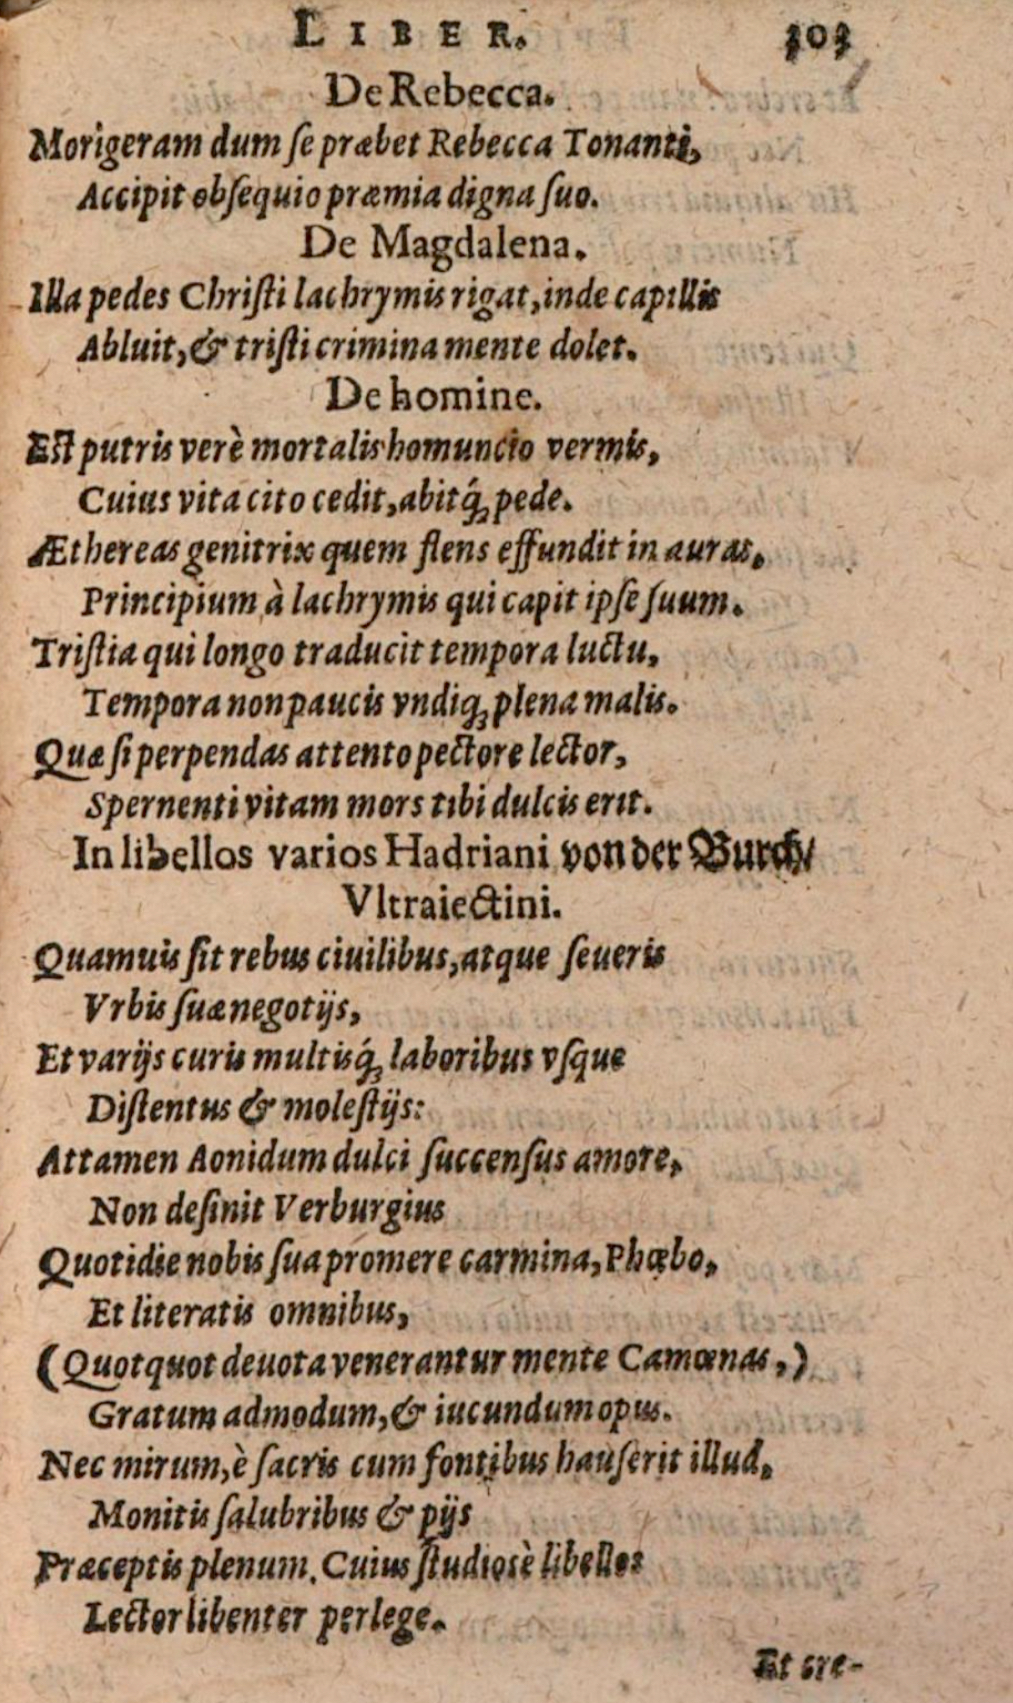 LIBER. 303
De Rebecca.
Morigeram dum ſe præbet Rebecca Tonanti,
Accipit obſequio præmia digna ſuo.
De Magdalena.
Illa pedes Chriſti lachrymis rigat, inde capillis
Abluit, & triſti crimina mente dolet.
De homine.
Eſt putris verè mortalis homuncio vermis,
Cuius vita cito cedit, abitq́; pede.
Æthereas genitrix quem flens effundit in auras,
Principium à lachrymis qui capit ipſe ſuum.
Triſtia qui longo traducit tempora luctu,
Tempora non paucis vndiq; plena malis.
Quæ ſi perpendas attento pectore lector,
Spernenti vitam mors tibi dulcis erit.
In libellos varios Hadriani von der Burch/
Vltraiectini.
Quamuis ſit rebus ciuilibus, atque ſeueris
Vrbis ſuæ negotijs,
Et varijs curis multisq́; laboribus vſque
Diſtentus & moleſtijs:
Attamen Aonidum dulci ſuccenſus amore,
Non deſinit Verburgius
Quotidie nobis ſua promere carmina, Phœbo,
Et literatis omnibus,
(Quotquot deuota venerantur mente Camœnas,)
Gratum admodum, & iucundum opus.
Nec mirum, è ſacris cum fontibus hauſerit illud,
Monitis ſalubribus & pijs
Præceptis plenum. Cuius ſtudiosè libellos
Lector libenter perlege.
Et cre-